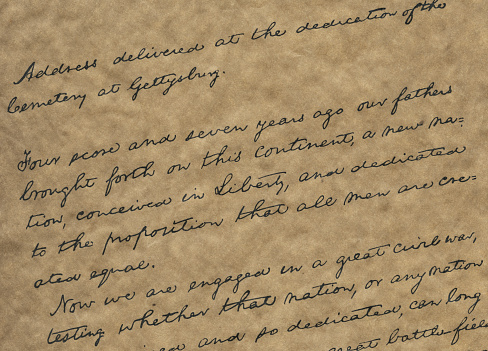 Address delivered at the dedication of the
Cemetery at Gettysburg.
Four score and seven years ago our fathers
brought forth on this continent, a new na=
tion, conceived in Liberty, and dedicated
to the proposition that all men are cre=
ated equal.
Now we are engaged in a great civil war,
testing whether that nation, or any nation
and so dedicated, can long
great battle field